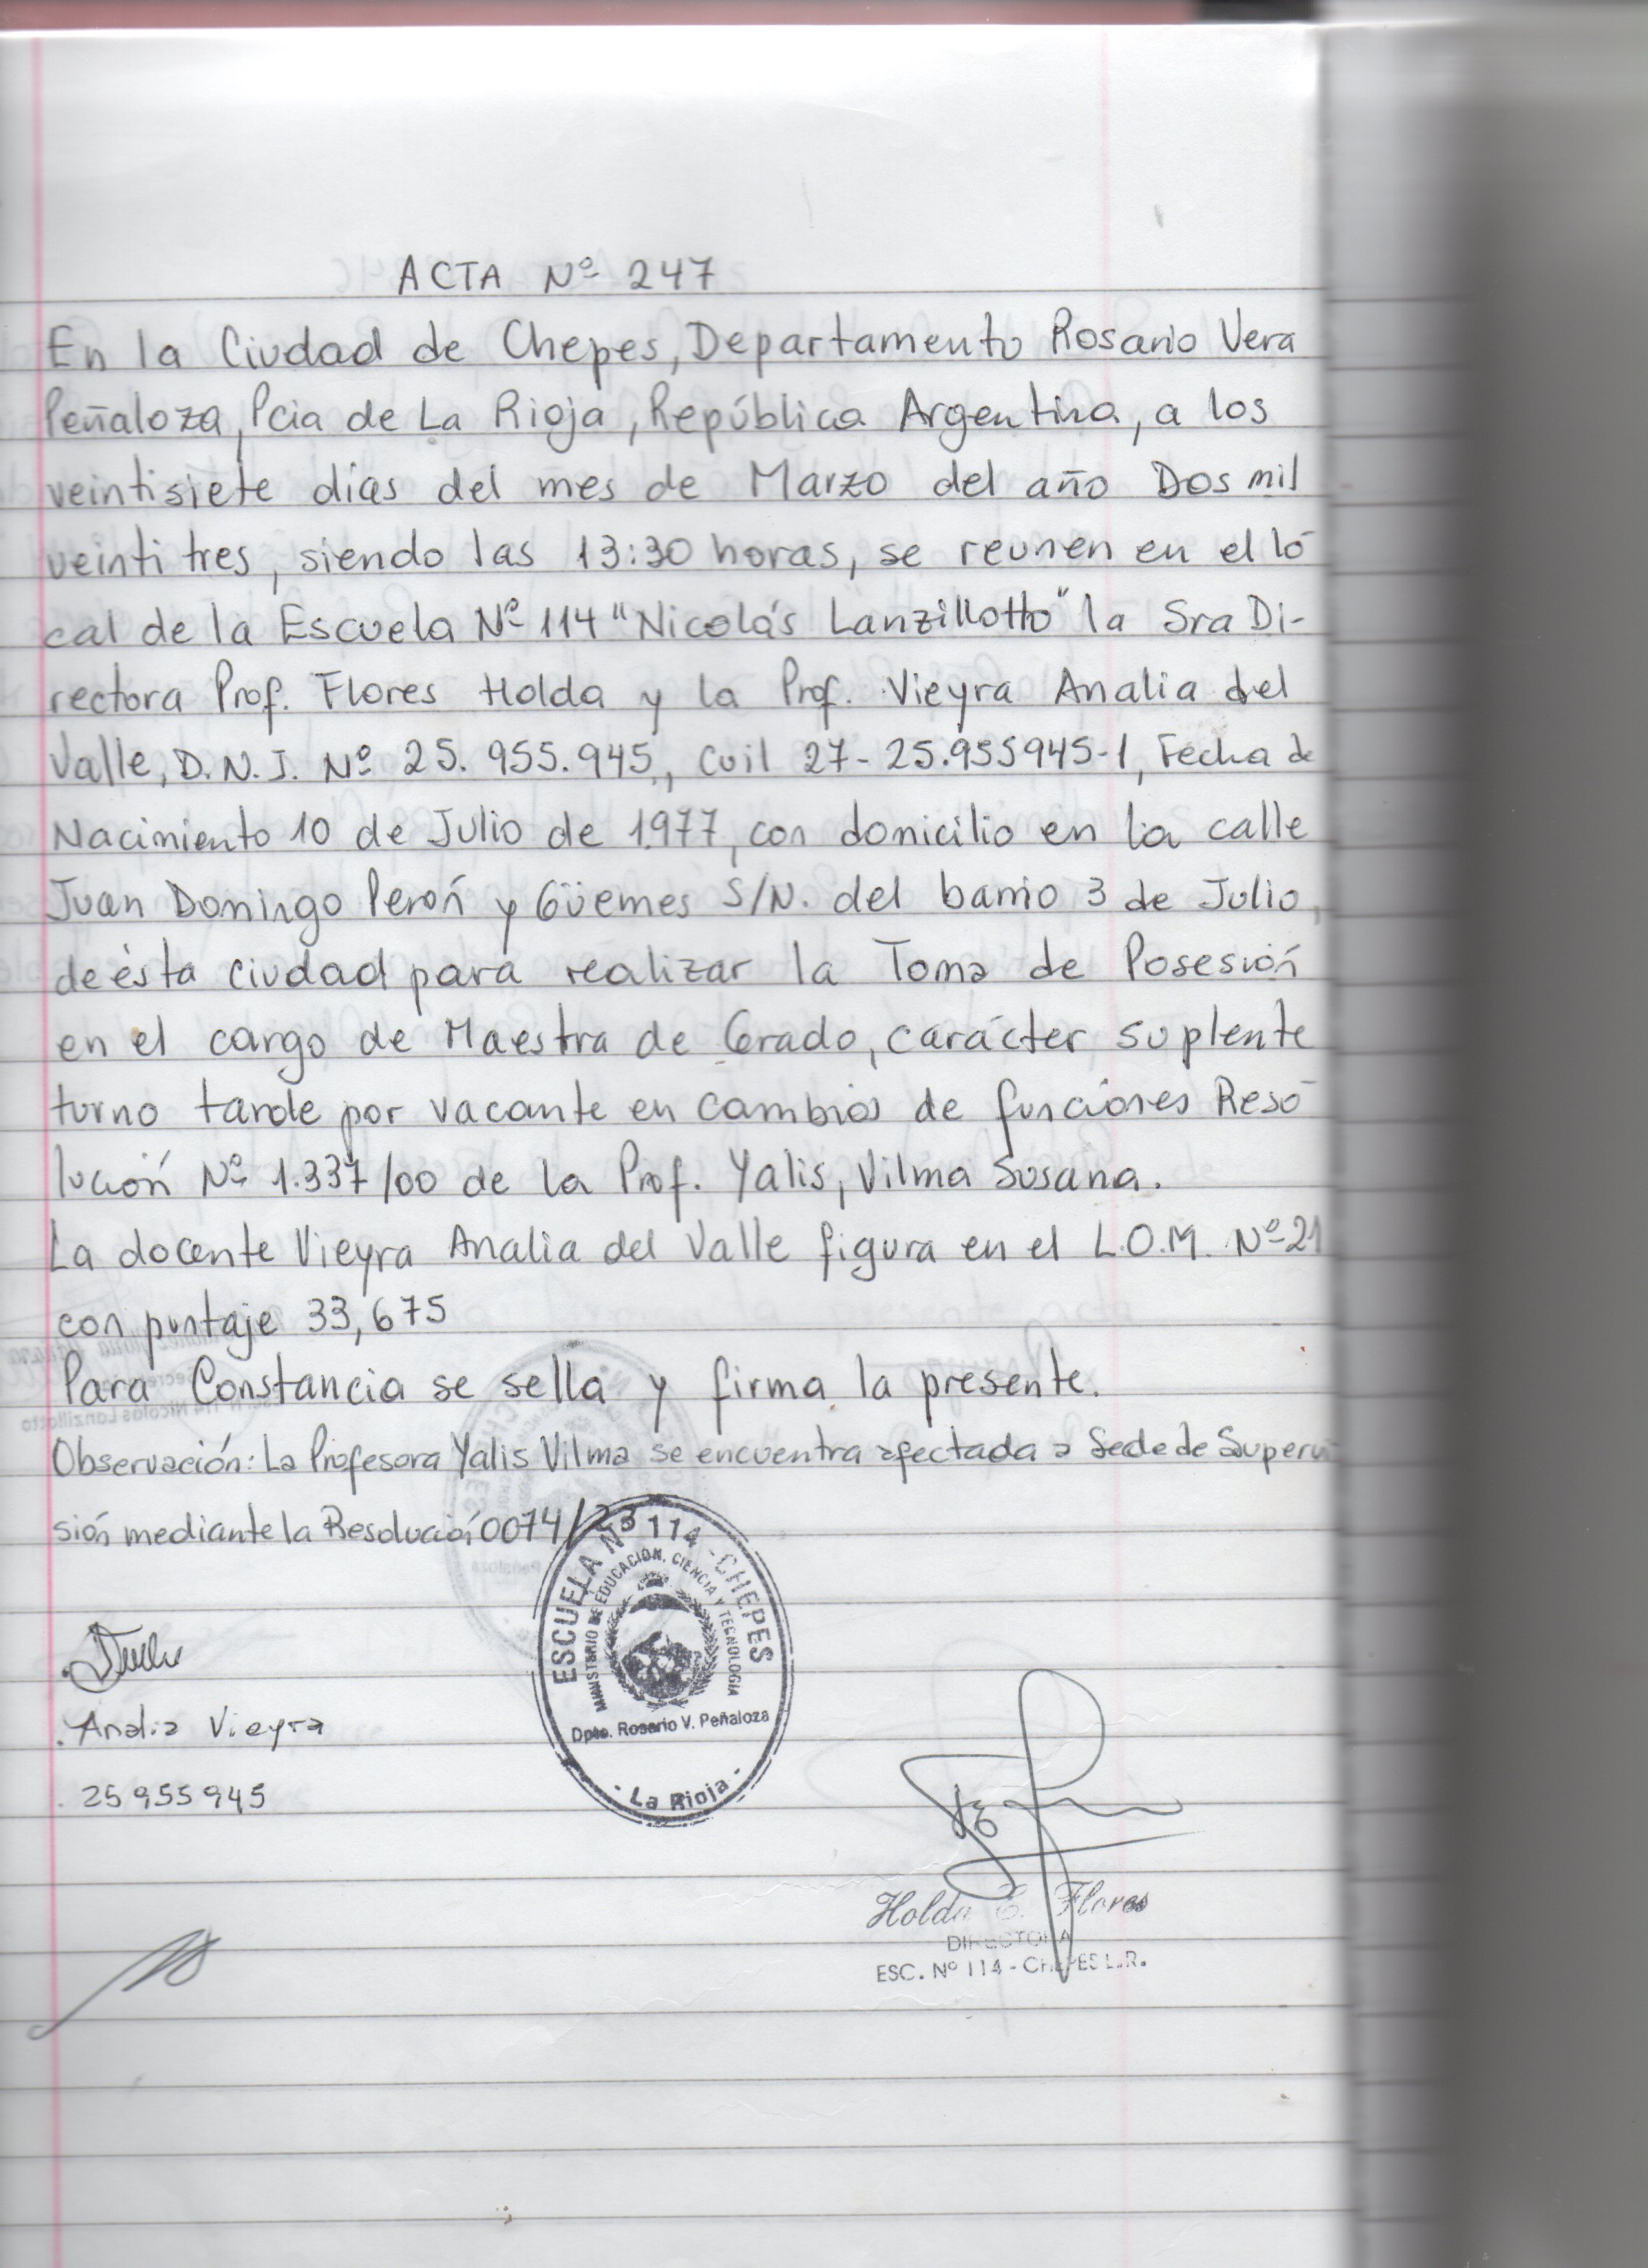 ACTA Nº 247
En la Ciudad de Chepes, Departamento Rosario Vera
Peñaloza, Pcia de La Rioja, República Argentina, a los
veintisiete días del mes de Marzo del año Dos mil
veinti tres, siendo las 13:30 horas, se reunen en el lo
cal de la Escuela Nº 114 "Nicolás Lanzillotto" la Sra Di-
rectora Prof. Flores Holda y la Prof. Vieyra Analia del
Valle, D.N.I. Nº 25.955.945, Cuil 27-25.955945-1, Fecha de
Nacimiento 10 de Julio de 1.977, con domicilio en la calle
Juan Domingo Perón y Güemes S/N. del barrio 3 de Julio,
de ésta ciudad para realizar la Toma de Posesión
en el cargo de Maestra de Grado, carácter suplente
turno tarde por vacante en cambios de funciones Reso
lución Nº 1.337/00 de la Prof. Yalis, Vilma Susana.
La docente Vieyra Analia del Valle figura en el L.O.M. Nº 21
con puntaje 33,675
Para Constancia se sella y firma la presente.
Observación: La Profesora Yalis Vilma se encuentra afectada a Sede de Supervi
sión mediante la Resolución 0074/23
ESCUELA Nº 114 - CHEPES
MINISTERIO DE EDUCACIÓN, CIENCIA Y TECNOLOGIA
Dpto. Rosario V. Peñaloza
- La Rioja -
Analia Vieyra
25955945
Holda E. Flores
DIRECTORA
ESC. Nº 114 - CHEPES L.R.